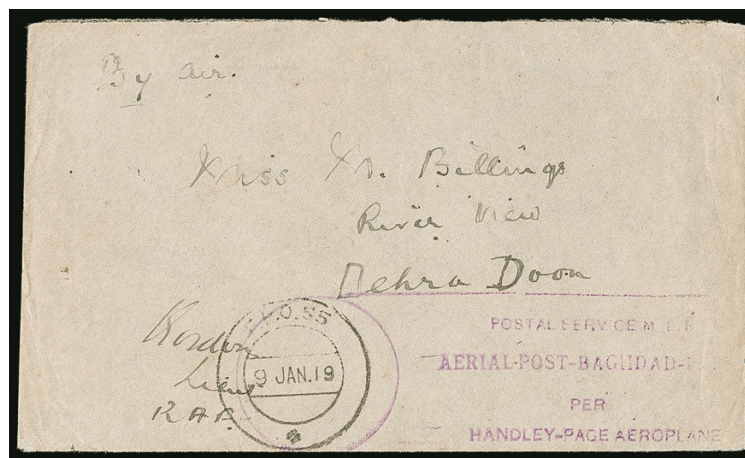 By air.
Miss M. Billings
River View
Dehra Doon
F.P.O. 55
9 JAN. 19
Lieut
R A F.
POSTAL SERVICE M. E. F
AERIAL-POST-BAGHDAD-
PER
HANDLEY-PAGE AEROPLANE